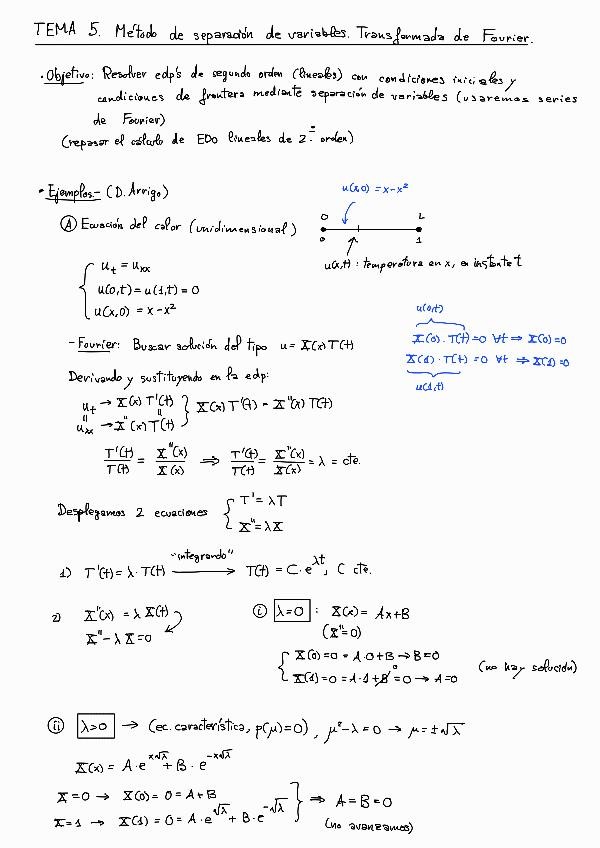 TEMA 5. Método de separación de variables. Transformada de Fourier.
· Objetivo: Resolver edp's de segundo orden (lineales) con condiciones iniciales y
condiciones de frontera mediante separación de variables (usaremos series
de Fourier)
(repasar el cálculo de EDO lineales de 2º orden)
· Ejemplos.- (D. Arrigo)
u(x,0) = x-x²
Ⓐ Ecuación del calor (unidimensional)
0 L
0 1
u(x,t): temperatura en x, en instante t
u_t = u_xx
u(0,t) = u(1,t) = 0
u(x,0) = x-x²
u(0,t)
X(0)·T(t)=0 ∀t ⇒ X(0)=0
X(1)·T(t)=0 ∀t ⇒ X(1)=0
u(1,t)
- Fourier: Buscar solución del tipo u = X(x)T(t)
Derivando y sustituyendo en la edp:
u_t → X(x)T'(t)
" "
u_xx → X''(x)T(t)
X(x)T'(t) = X''(x)T(t)
T'(t)/T(t) = X''(x)/X(x) ⇒ T'(t)/T(t) = X''(x)/X(x) = λ = cte.
Desplegamos 2 ecuaciones
T' = λT
X'' = λX
1) T'(t) = λ·T(t) "integrando" → T(t) = C·e^{λt}, C cte.
2) X''(x) = λX(t)
X'' - λX = 0
ⓘ λ=0 : X(x) = Ax+B
(X''=0)
X(0)=0 = A·0+B → B=0
X(1)=0 = A·1+B⁰ = 0 → A=0
(no hay solución)
ⓘⓘ λ>0 → (ec. característica, p(μ)=0), μ²-λ=0 → μ=±√λ
X(x) = A·e^{x√λ} + B·e^{-x√λ}
X=0 → X(0) = 0 = A+B
X=1 → X(1) = 0 = A·e^{√λ} + B·e^{-√λ}
⇒ A=B=0
(no avanzamos)